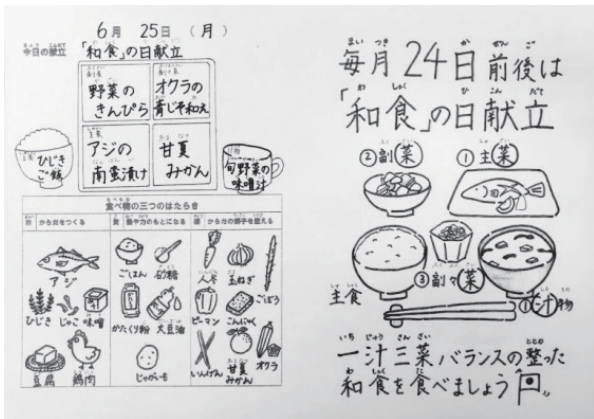 6月 25日 (月)
今日の献立 「和食」の日献立
副菜
野菜の
きんぴら
副々菜
オクラの
青じそ和え
主菜
アジの
南蛮漬け
甘夏
みかん
主食
ひじき
ご飯
汁物
旬野菜の
味噌汁
食べ物の三つのはたらき
赤 からだをつくる
黄 熱や力のもとになる
緑 からだの調子を整える
アジ
ひじき じゃこ 味噌
豆腐 鶏肉
ごはん 砂糖
かたくり粉 大豆油
じゃがいも
人参 玉ねぎ ごぼう
ピーマン こんにゃく
いんげん 甘夏みかん オクラ
毎月24日前後は
「和食」の日献立
②副菜 ①主菜
③副々菜
主食 ①汁物
一汁三菜バランスの整った
和食を食べましょう